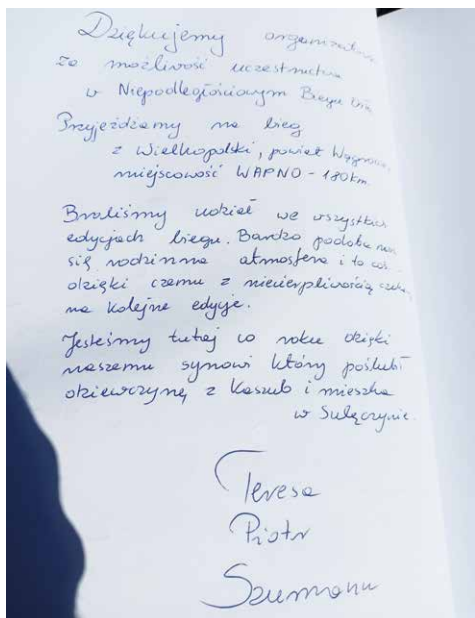 Dziękujemy
za możliwość uczestnictwa
w Niepodległościowym Biegu
Przyjeżdżamy na bieg
z Wielkopolski, powiat
miejscowość WAPNO - 180km.
Braliśmy udział we wszystkich
edycjach biegu. Bardzo podoba nam
się rodzinna atmosfera i to coś
dzięki czemu z niecierpliwością
na kolejne edycje.
Jesteśmy tutaj co roku dzięki
naszemu synowi który poślubił
dziewczynę z Kaszub i mieszka
w Sulęczynie.
Teresa
Piotr
Szumann